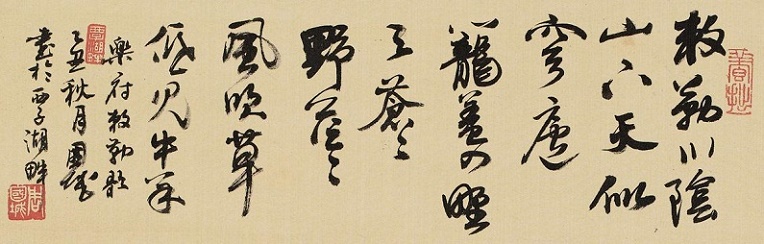 敕勒川陰
山下天似
穹廬
籠蓋四野
天蒼々
野茫々
風吹草
低見牛羊
樂府敕勒歌
乙丑秋月國城
書於西子湖畔
周國城